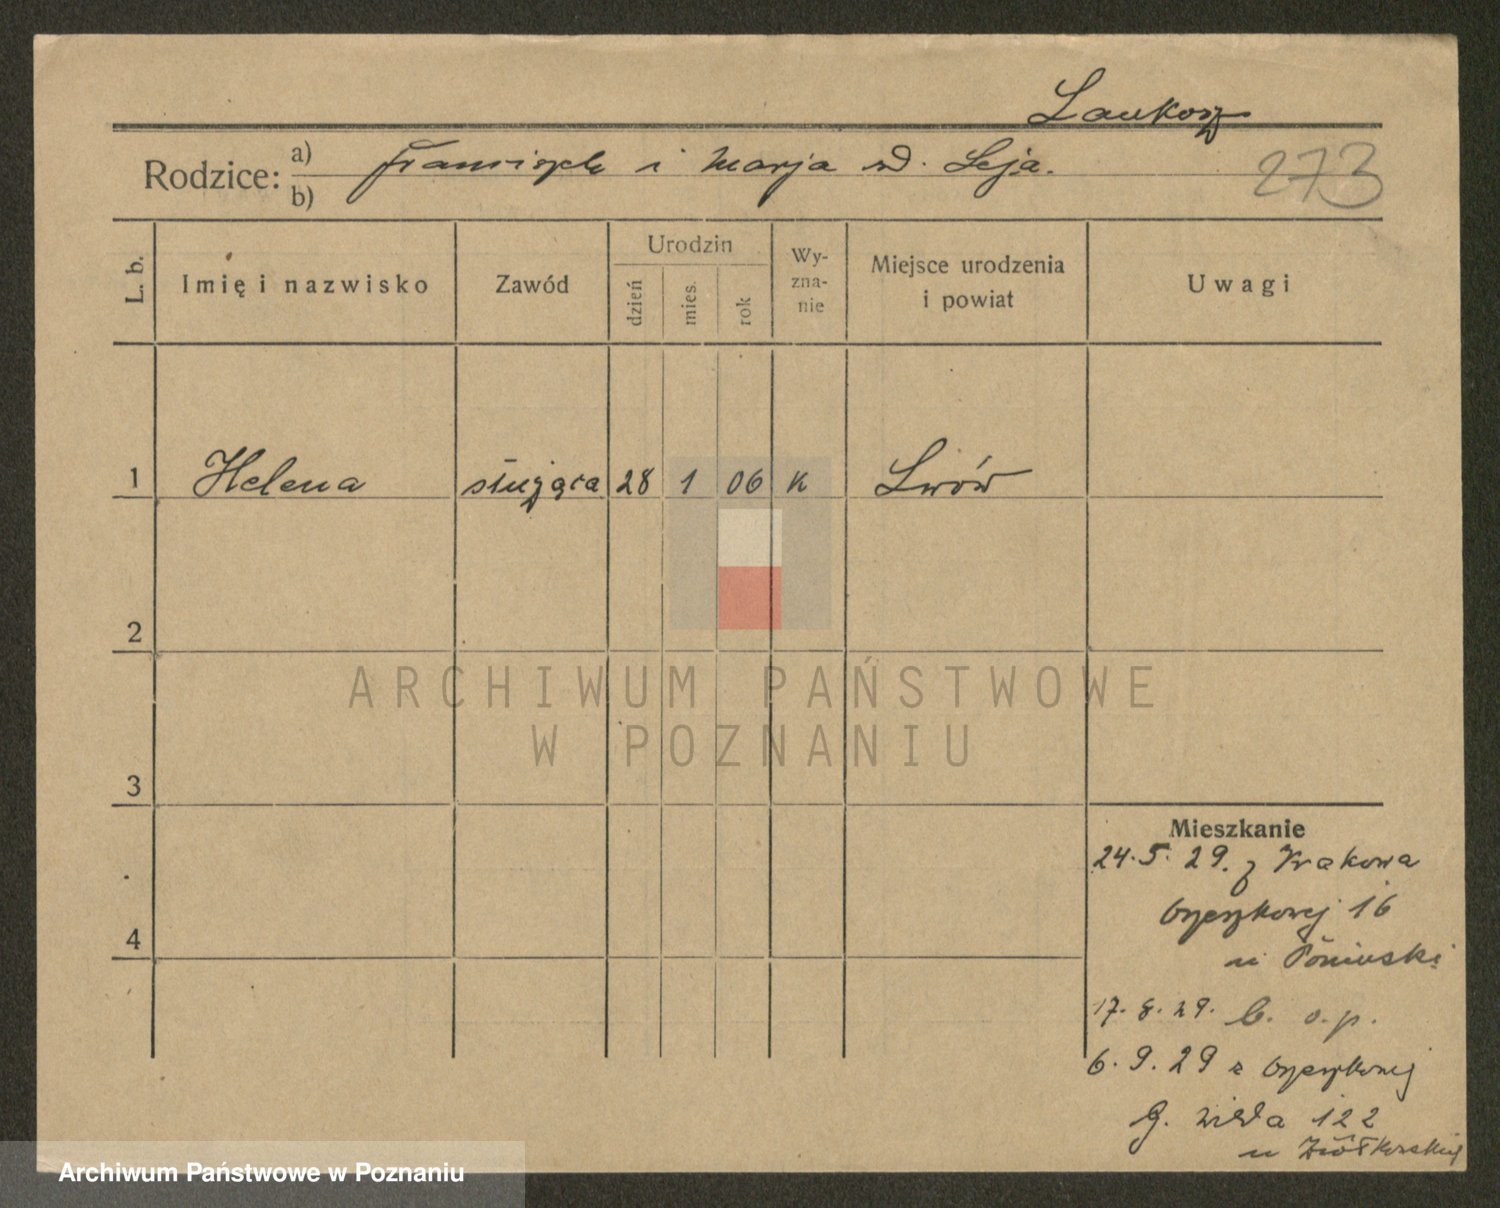 Laukosz
Rodzice: a) b) Franciszek i Marja zd. Leja.
273
L. b. Imię i nazwisko Zawód Urodzin dzień mies. rok Wyznanie Miejsce urodzenia i powiat Uwagi
1 Helena służąca 28 1 06 K Lwów
2
3
4
Mieszkanie
24.5.29. z Krakowa
Orzeszkowej 16
u Poniński
17.8.29. b. o.p.
6.9.29 z Orzeszkowej
G. Wilda 122
u Ziółkowskiej
ARCHIWUM PAŃSTWOWE
W POZNANIU
Archiwum Państwowe w Poznaniu